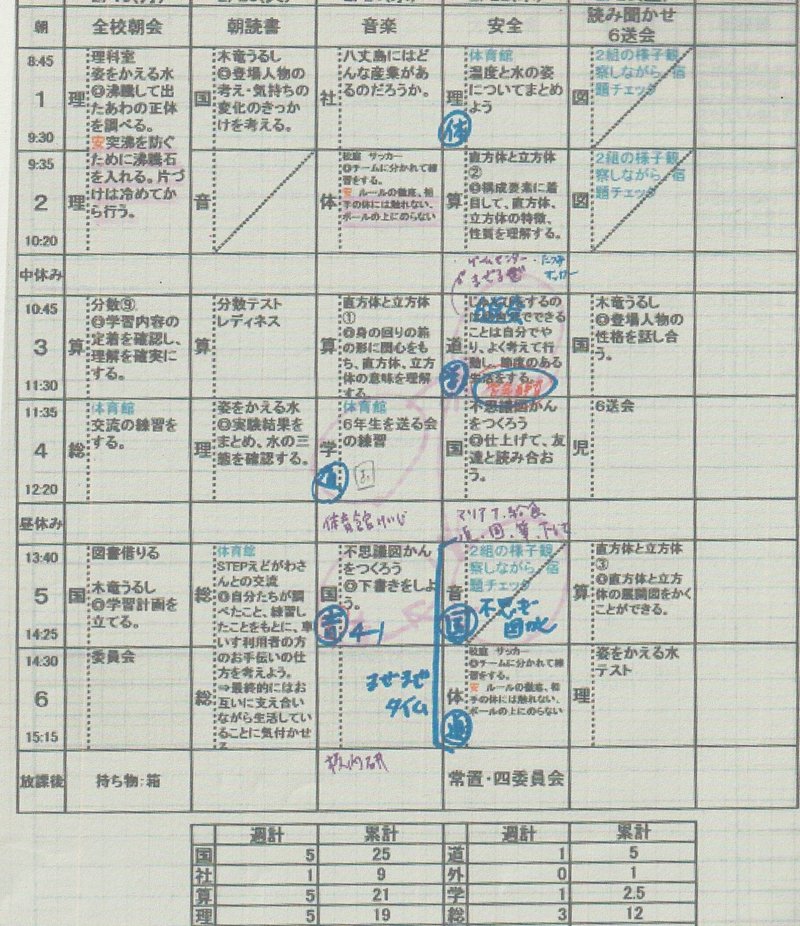 朝 全校朝会 朝読書 音楽 安全 読み聞かせ
6送会
8:45
1
9:30
理
理科室
姿をかえる水
◎沸騰して出
たあわの正体
を調べる。
安突沸を防ぐ
ために沸騰石
を入れる。片づ
けは冷めてか
ら行う。
国
木竜うるし
◎登場人物の
考え・気持ちの
変化のきっか
けを考える。
社
八丈島にはど
んな産業があ
るのだろうか。
理
体育館
温度と水の姿
についてまとめ
よう
体
図
2組の様子観
察しながら、宿
題チェック
9:35
2
10:20
理
音
体
校庭 サッカー
◎チームに分かれて練
習をする。
安 ルールの徹底、相
手の体には触れない、
ボールの上にのらない
算
直方体と立方体
②
◎構成要素に着
目して、直方体、
立方体の特徴、
性質を理解する。
図
2組の様子観
察しながら、宿
題チェック
中休み
10:45
3
11:30
算
分数⑨
◎学習内容の
定着を確認し、
理解を確実に
する。
算
分数テスト
レディネス
算
直方体と立方体
①
◎身の回りの箱
の形に関心をも
ち、直方体、立方
体の意味を理解
する。
道
できる
ことは自分でや
り、よく考えて行
動し、節度のある
生活をする。
国
木竜うるし
◎登場人物の
性格を話し合
う。
11:35
4
12:20
総
体育館
交流の練習を
する。
理
姿をかえる水
◎実験結果を
まとめ、水の三
態を確認する。
学
体育館
6年生を送る会
の練習
国
不思議図かん
をつくろう
◎仕上げて、友
達と読み合お
う。
児
6送会
昼休み
13:40
5
14:25
国
図書借りる
木竜うるし
◎学習計画を
立てる。
総
体育館
STEPえどがわさ
んとの交流
◎自分たちが調
べたこと、練習し
たことをもとに、車
いす利用者の方
のお手伝いの仕
方を考えよう。
⇒最終的にはお
互いに支え合い
ながら生活してい
ることに気付かせ
る
国
不思議図かん
をつくろう
◎下書きをしよ
う。
4-1
音
2組の様子観
察しながら、宿
題チェック
国
算
直方体と立方体
③
◎直方体と立方
体の展開図をかく
ことができる。
14:30
6
15:15
委員会
総
まぜまぜ
タイム
体
校庭 サッカー
◎チームに分かれて練
習をする。
安 ルールの徹底、相
手の体には触れない、
ボールの上にのらない
理
姿をかえる水
テスト
放課後 持ち物:箱 常置・四委員会
週計 累計 週計 累計
国 5 25 道 1 5
社 1 9 外 0 1
算 5 21 学 1 2.5
理 5 19 総 3 12